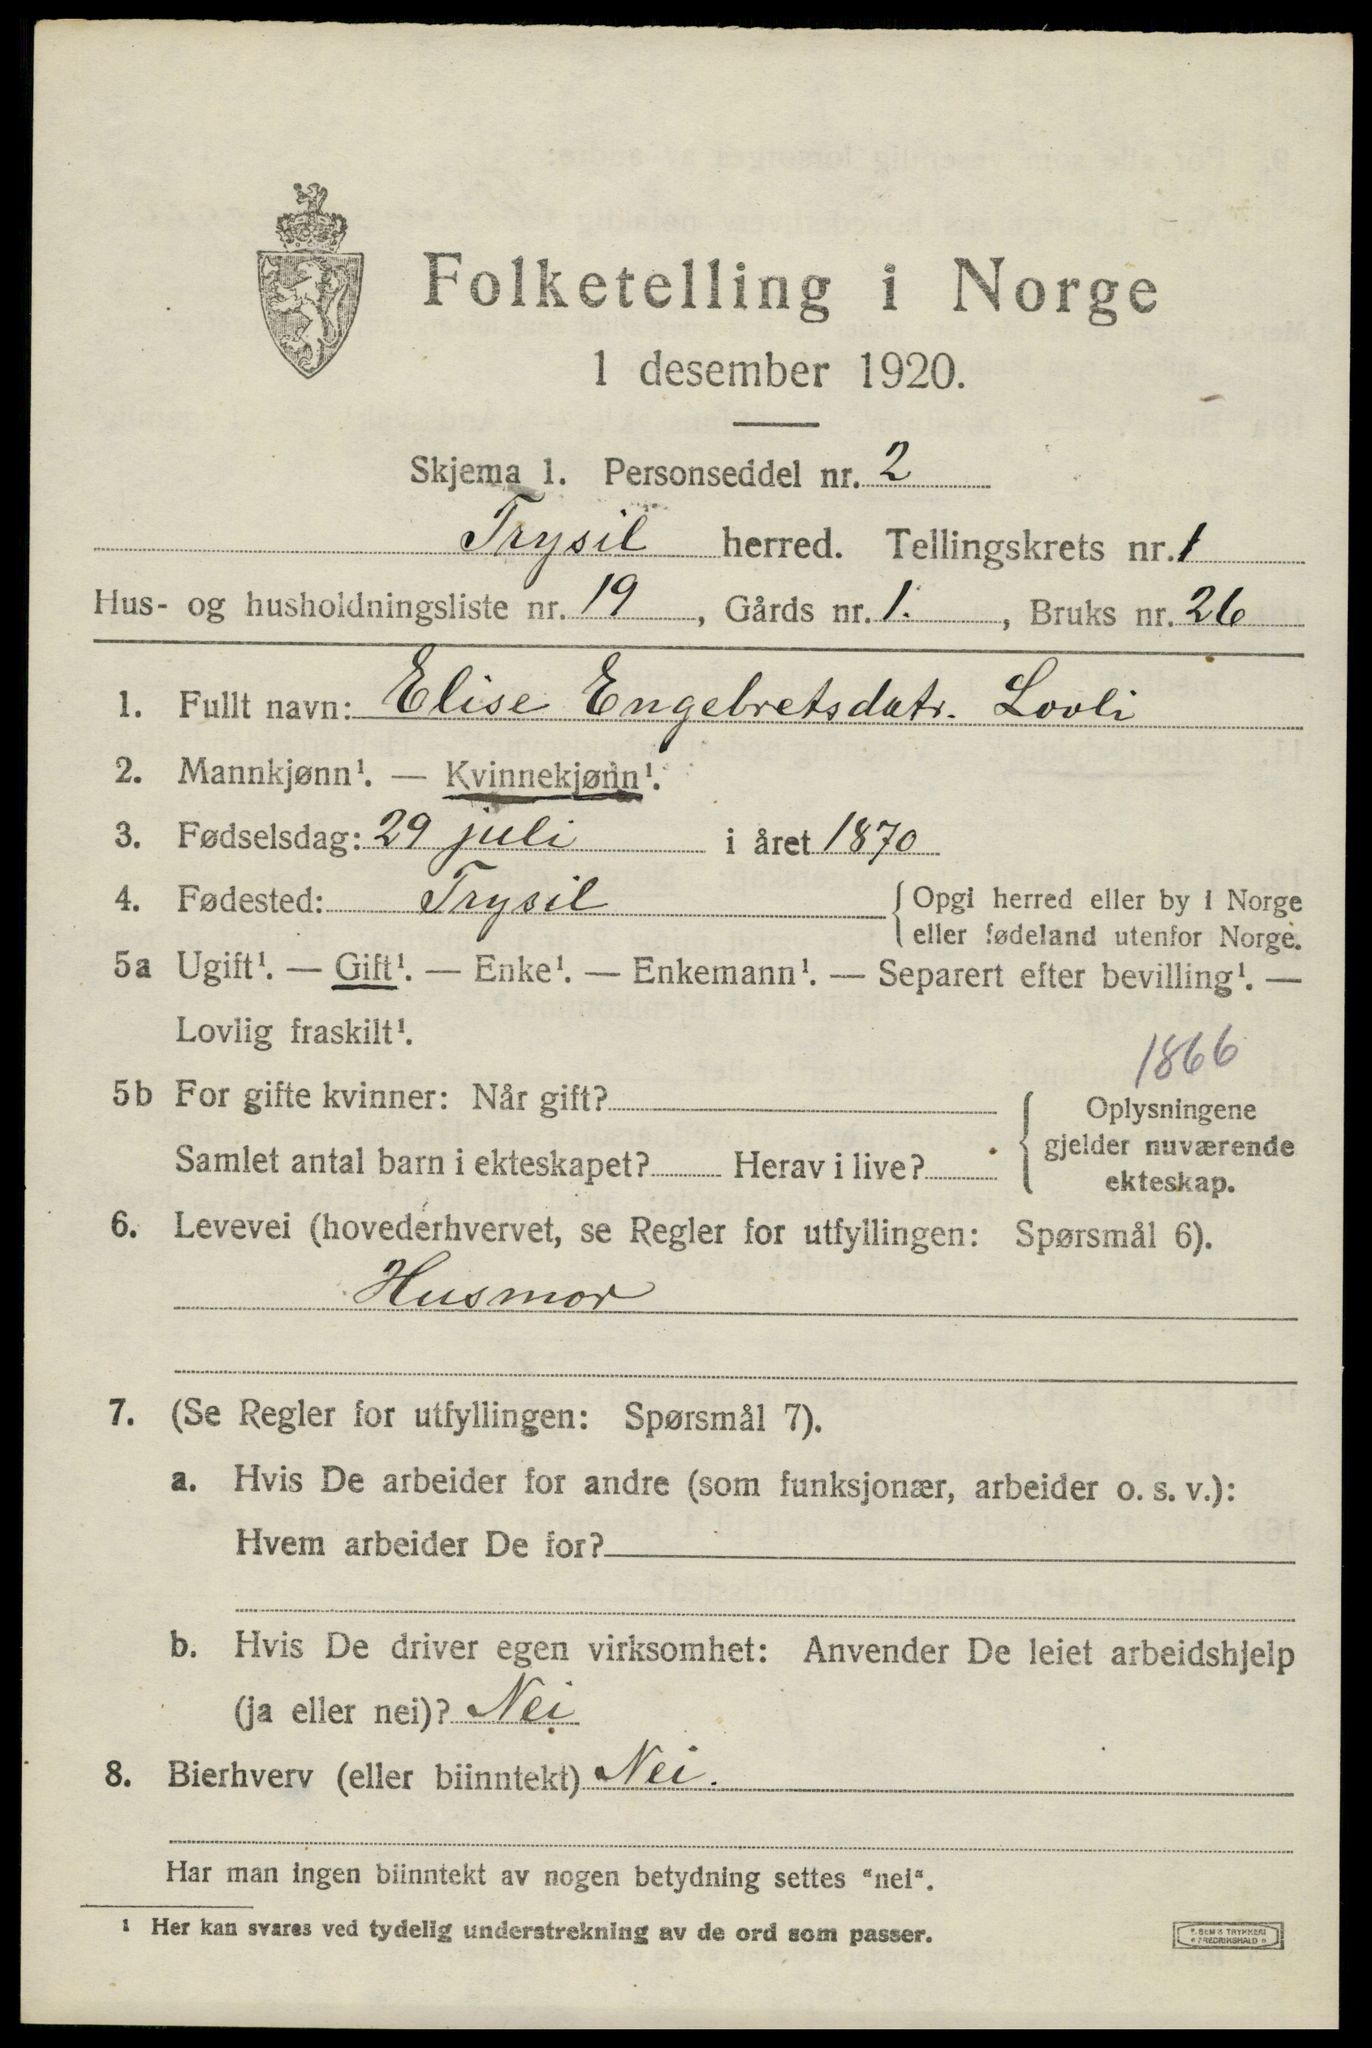 Folketelling i Norge
1 desember 1920.
Skjema 1. Personseddel nr. 2
Trysil herred. Tellingskrets nr. 1
Hus- og husholdningsliste nr. 19, Gårds nr. 1., Bruks nr. 26
1. Fullt navn: Elise Engebretsdatr. Lovli
2. Mannkjønn¹. — Kvinnekjønn¹.
3. Fødselsdag: 29 juli i året 1870
4. Fødested: Trysil { Opgi herred eller by i Norge
eller fødeland utenfor Norge.
5a Ugift¹. — Gift¹. — Enke¹. — Enkemann¹. — Separert efter bevilling¹. —
Lovlig fraskilt¹.
1866
5b For gifte kvinner: Når gift? { Oplysningene
gjelder nuværende
Samlet antal barn i ekteskapet? Herav i live?
ekteskap.
6. Levevei (hovederhvervet, se Regler for utfyllingen: Spørsmål 6).
Husmor
7. (Se Regler for utfyllingen: Spørsmål 7).
a. Hvis De arbeider for andre (som funksjonær, arbeider o. s. v.):
Hvem arbeider De for?
b. Hvis De driver egen virksomhet: Anvender De leiet arbeidshjelp
(ja eller nei)? Nei
8. Bierhverv (eller biinntekt) Nei.
Har man ingen biinntekt av nogen betydning settes "nei".
¹ Her kan svares ved tydelig understrekning av de ord som passer.
E. SEM'S TRYKKERI
FREDRIKSHALD